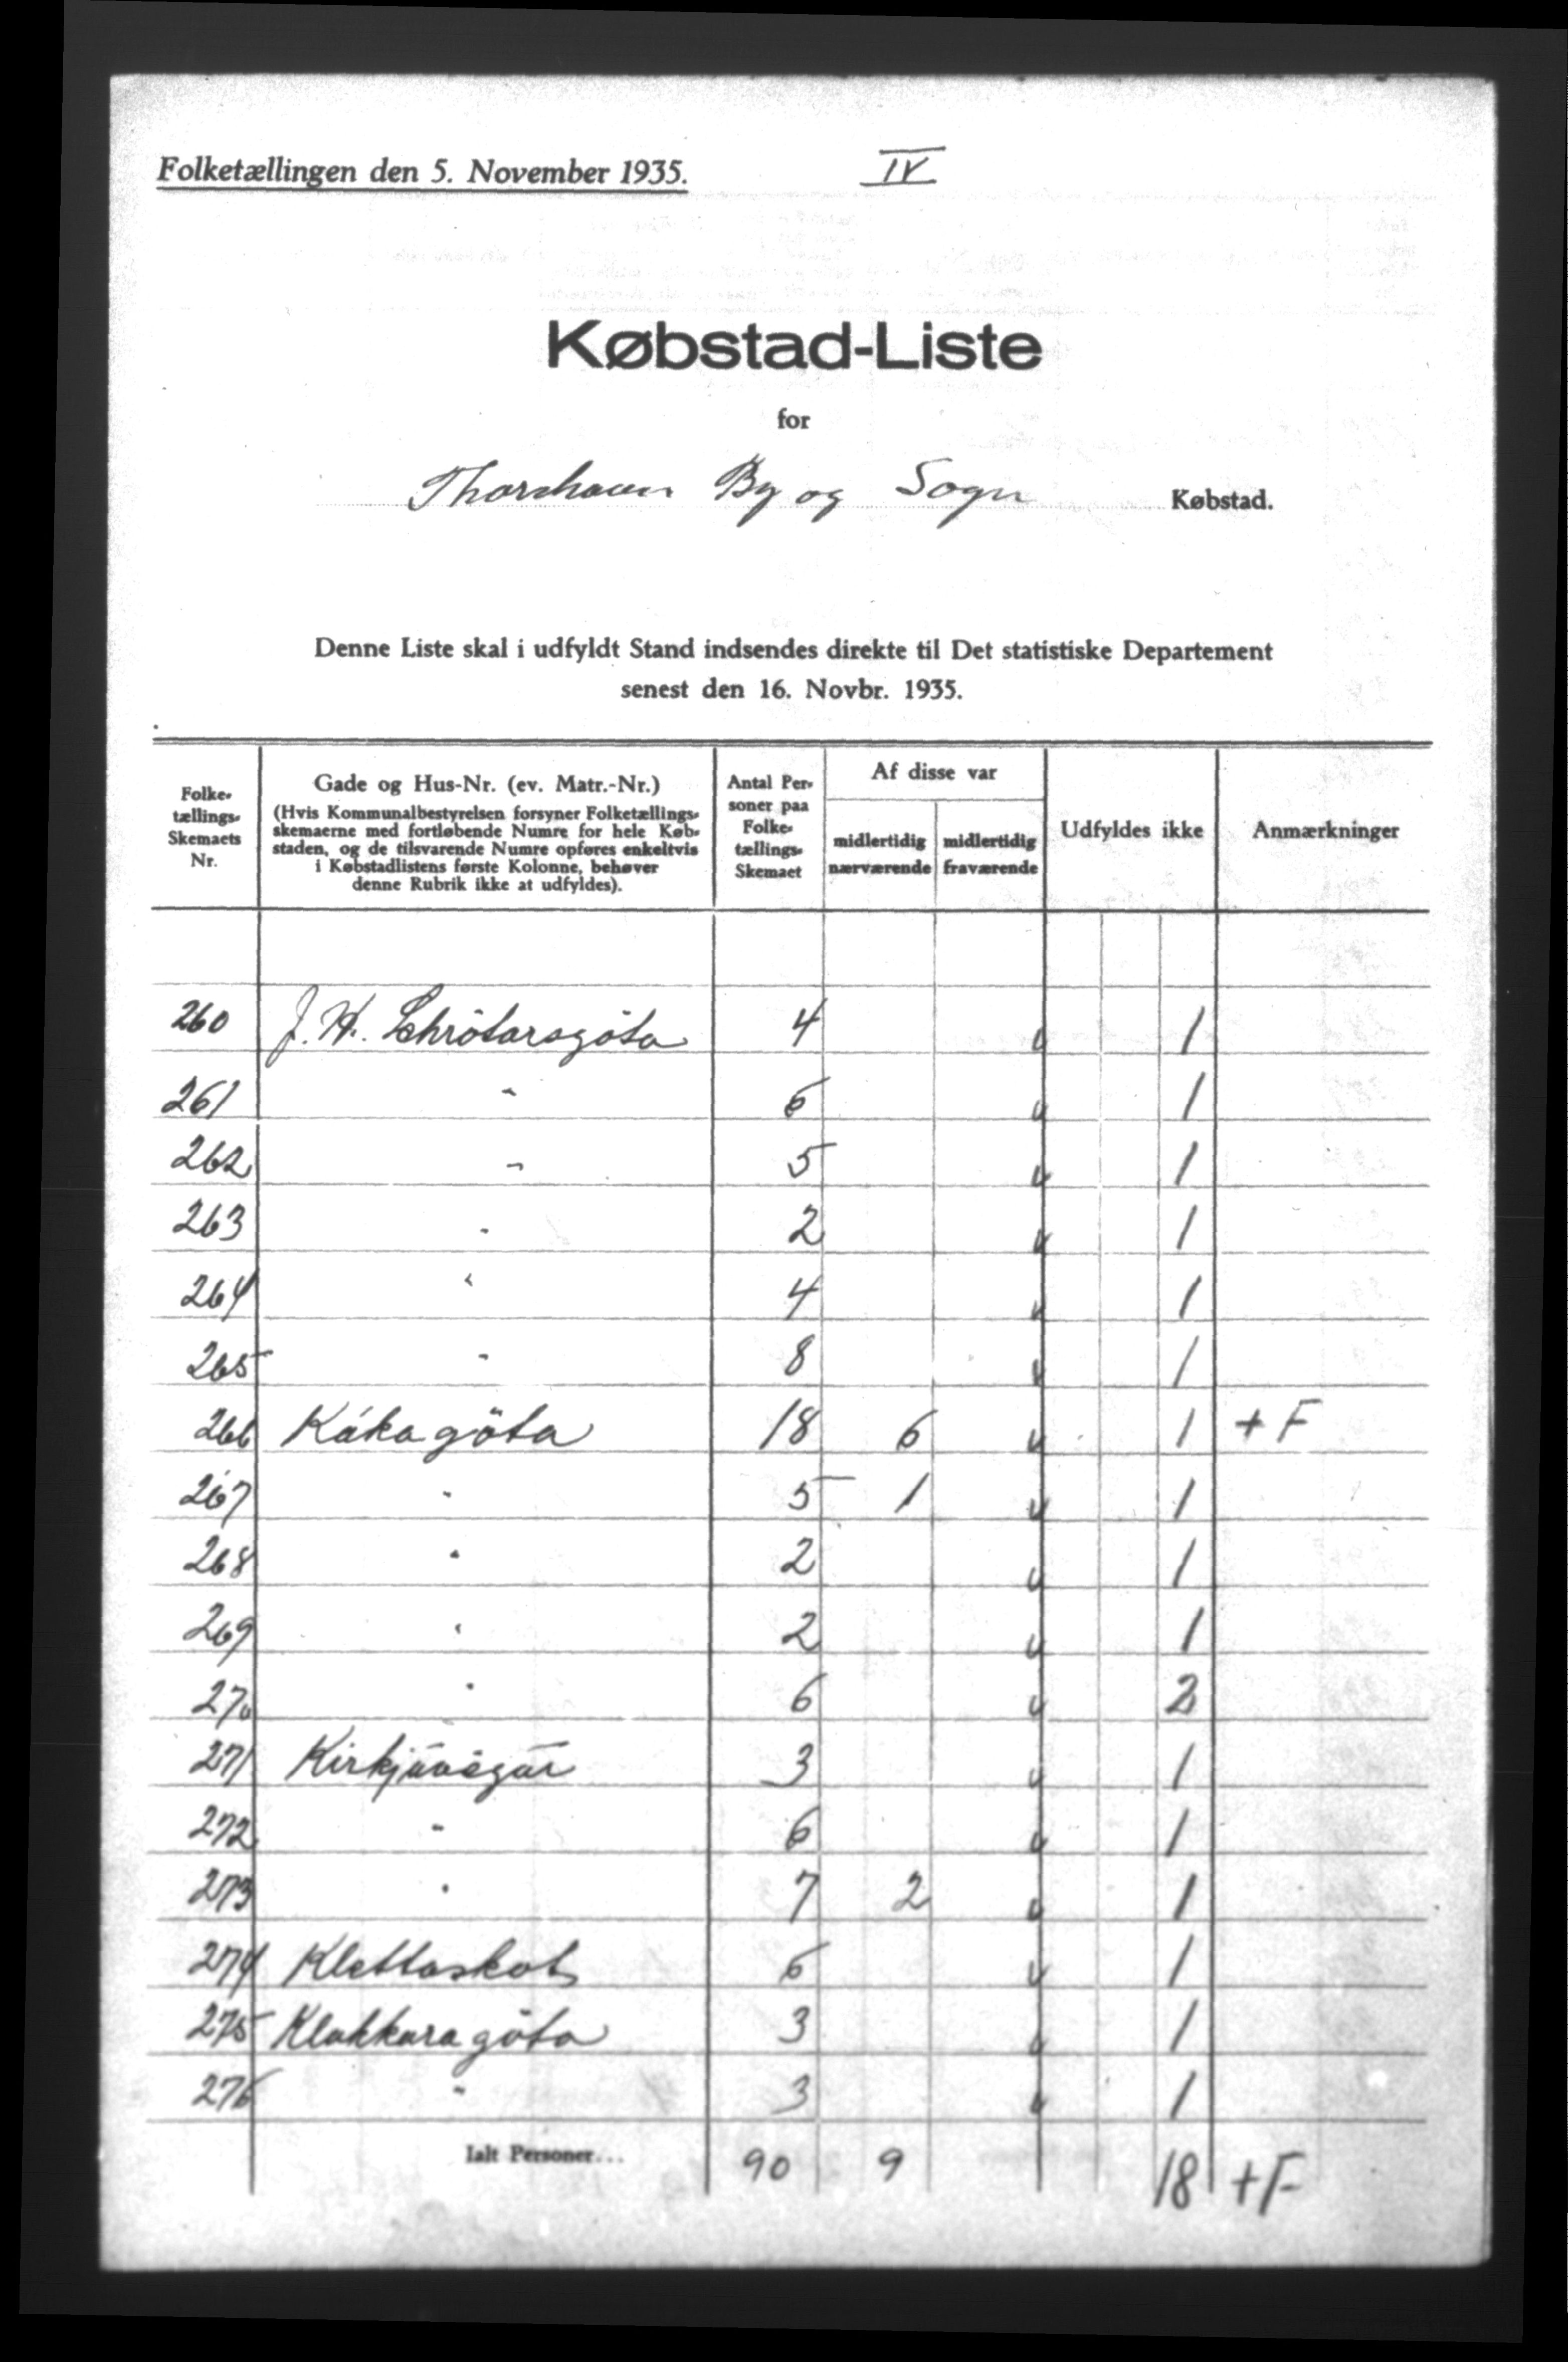 Folketællingen den 5. November 1935.
IV
Købstad-Liste
for
Thorshavn By og Sogn Købstad.
Denne Liste skal i udfyldt Stand indsendes direkte til Det statistiske Departement
senest den 16. Novbr. 1935.
Folke-
tællings-
Skemaets
Nr.
Gade og Hus-Nr. (ev. Matr.-Nr.)
(Hvis Kommunalbestyrelsen forsyner Folketællings-
skemaerne med fortløbende Numre for hele Køb-
staden, og de tilsvarende Numre opføres enkeltvis
i Købstadlistens første Kolonne, behøver
denne Rubrik ikke at udfyldes).
Antal Per-
soner paa
Folke-
tællings-
Skemaet
Af disse var
midlertidig
nærværende
midlertidig
fraværende
Udfyldes ikke
Anmærkninger
260 J. H. Schrötarsgöta 4 v 1
261 " 6 v 1
262 " 5 v 1
263 " 2 v 1
264 " 4 v 1
265 " 8 v 1
266 Kákagöta 18 6 v 1 + F
267 " 5 1 v 1
268 " 2 v 1
269 " 2 v 1
270 " 6 v 2
271 Kirkjuvégur 3 v 1
272 " 6 v 1
273 " 7 2 v 1
274 Klettaskot 6 v 1
275 Klakkaragöta 3 v 1
276 " 3 v 1
Ialt Personer... 90 9 18 +F